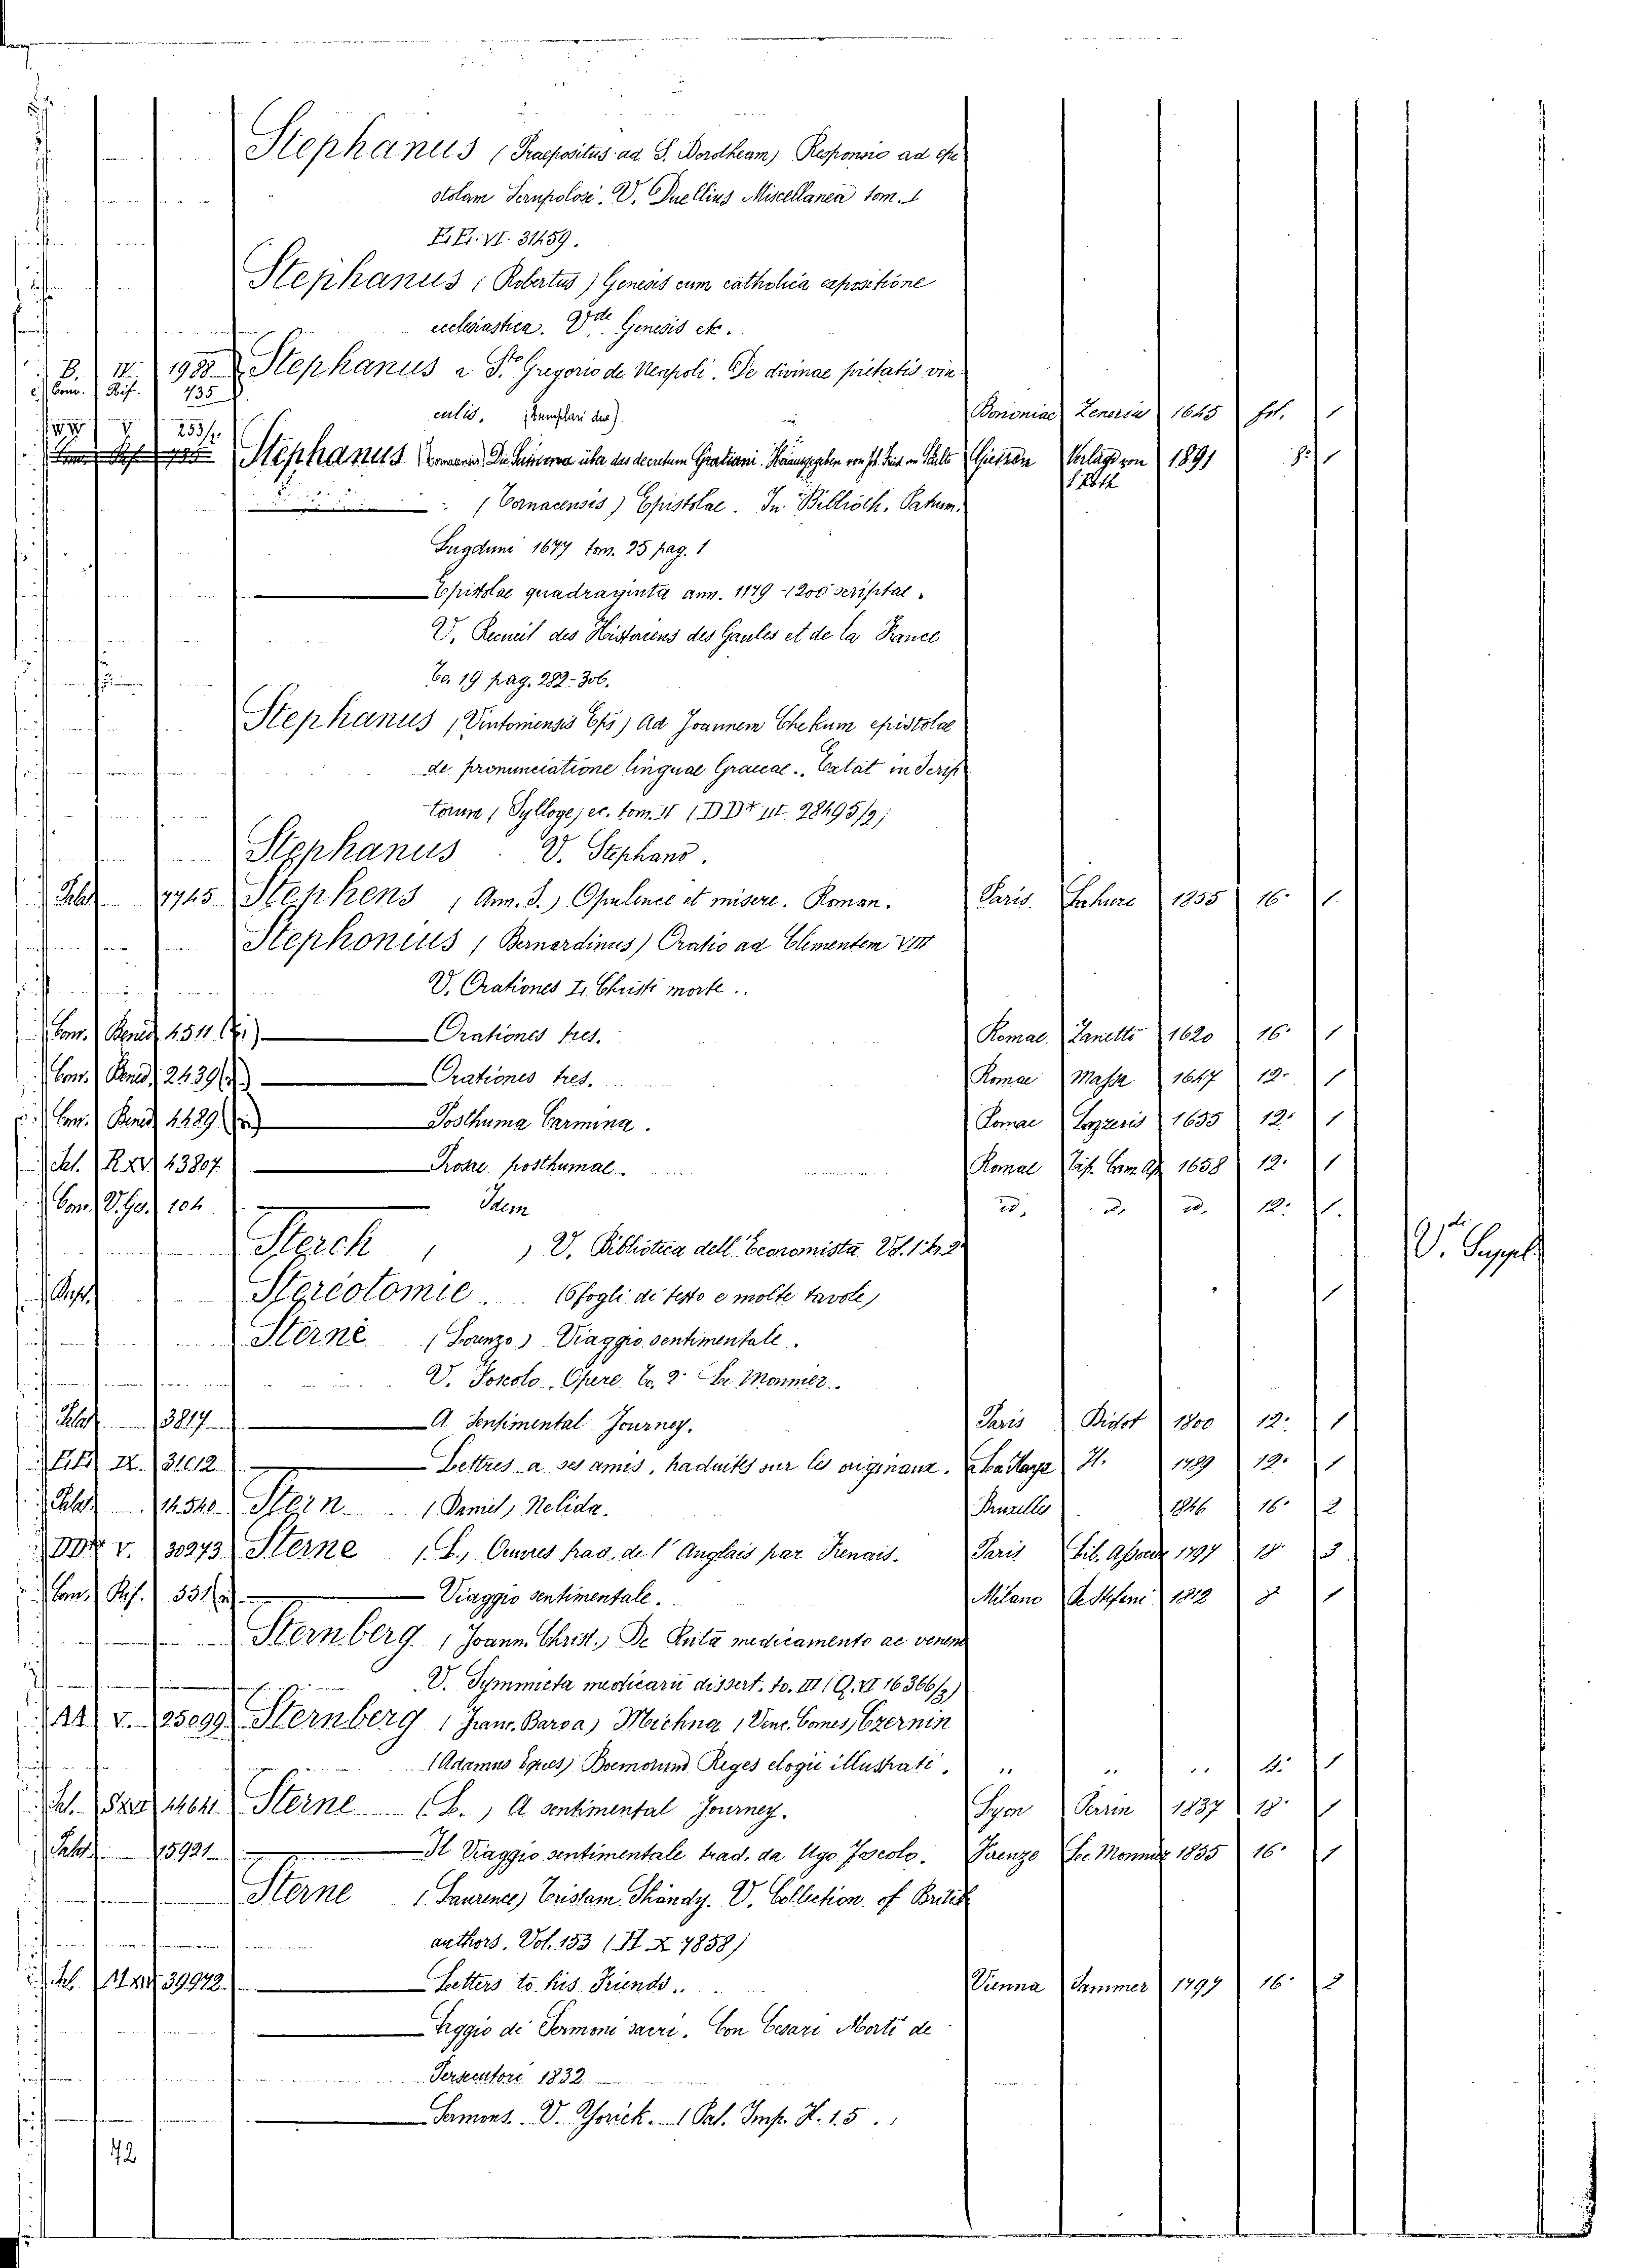 Stephanus (Praepositus ad S. Nordheam) Responsio ad epi
stolam V. Duellius Miscellanea tom. 1
E.E. VI. 31459.
Stephanus (Robertus) Genesis cum catholica expositione
ecclesiastica. Vde Genesis etc.
B. IV. 1988 Stephanus a Sto Gregorio de Neapoli. De divinae pietatis vin
Conv. Rif. 435
culis. (Exemplari due). Bononiae Zenerio 1645 fol. 1
V 253/2
Stephanus Die Summa über das decretum Gratiani. Herausgegeben von Joh. Fried. von Schulte Giessen Verlag von 1891 8. 1
Roth
(Tornacensis) Epistolae. In Biblioth. Patrum.
Lugduni 1677 tom. 25 pag. 1
Epistolae quadraginta ann. 1179-1200 scriptae.
V. Recueil des Historiens des Gaules et de la France
To. 19 pag. 282-306.
Stephanus (Vintoniensis Eps) Ad Joannem Chekum epistolae
de pronunciatione linguae Graecae. Extat in Scrip
torum (Sylloge) ec. tom. II (DD* III. 28495/2)
Stephanus V. Stephano.
Palat 7745 Stephens (Ann. S.) Opulence et misere. Roman. Paris. Lahure 1855 16. 1
Stephonius (Bernardinus) Oratio ad Clementem VIII
V. Orationes I. Christi morte.
Conv. Bened. 4511 Orationes tres. Romae. Zanetti 1620 16. 1
Conv. Bened. 2439 Orationes tres. Romae Massa 1647 12. 1
Conv. Bened. 4489 Posthuma Carmina. Romae Lazzeris 1655 12. 1
R. XV. 43807 Prosae posthumae. Romae Tip. Cam. Ap. 1658 12. 1
Con. V. Ge. 104 Idem id. id. id. 12. 1.
Sterch , V. Bibliotica dell' Economista Vol. 1 to 2 V.di Suppl
Stereotomie. (6 fogli di testo e molte tavole) 1
Sterne (Lorenzo) Viaggio sentimentale.
V. Foscolo, Opere. To. 2. Le Monnier.
Palat 3817 A Sentimental Journey. Paris Didot 1800 12. 1
31612 Lettres a ses amis, traduites sur les originaux. La Haye H. 1789 12. 1
Palat 14.540 Stern (Daniel) Nelida. Bruxelles 1846 16. 2
V. 30273 Sterne (L.) Oeuvres trad. de l' Anglais par Frenais. Paris Lib. Assoc. 1797 18. 3
Conv. Rif. 331 Viaggio sentimentale. Milano De Stefani 1812 8 1
Sternberg (Joann. Christ.) De Ruta medicamento ac veneno
V. Symmicta medicarū dissert. to. III (Q. VI 16366/3)
AA V. 25099 Sternberg (Franc. Baroa) Michna (Venc. Comes) Czernin
(Adamus Eques) Boemorum Reges elogii illustrati. " " " 4. 1
4464 Sterne (L.) A sentimental Journey. Lyon Perrin 1837 18. 1
Palat 15921 Il Viaggio sentimentale trad. da Ugo Foscolo. Firenze Le Monnier 1855 16. 1
Sterne (Laurence) Tristam Shandy. V. Collection of British
authors. Vol. 153 (II. X 7858)
39972. Letters to his Friends. Vienna Sammer 1797 16. 2
Saggio di Sermoni sacri. Con Cesari Morti de
Persecutori 1832
Sermons. V. Yorick. (Pal. Imp. H. 15.)
72